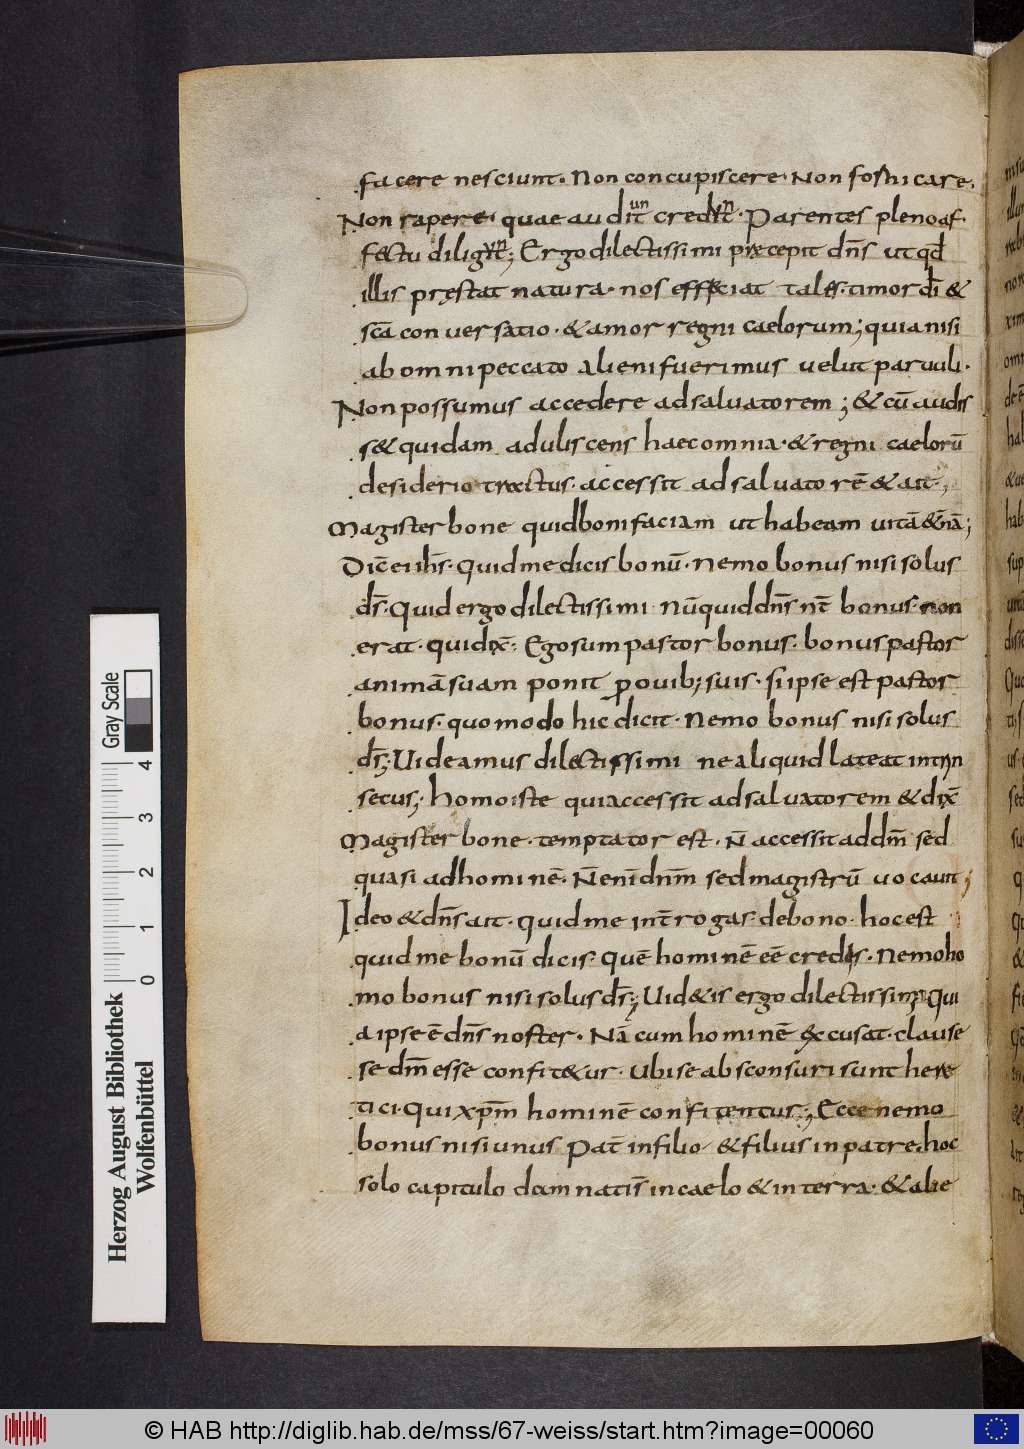 facere nesciunt. Non concupiscere. Non fornicare.
Non rapere. quae audiunt credunt. Parentes pleno af
fectu diligunt; Ergo dilectissimi precepit dn̄s ut qd̄
illis pręstat natura. nos efficiat tales. timor dī &
sc̄a conversatio. & amor regni caelorum; quia nisi
ab omni peccato alieni fuerimus velut parvuli.
Non possumus accedere ad salvatorem; & cū audis
s& quidam aduliscens haec omnia. & regni caelorū
desiderio tractus. accessit ad salvatorē & ait;
Magister bone quid boni faciam ut habeam vitā &ernā;
Dix̄ ei ih̄s. quid me dicis bonū. Nemo bonus nisi solus
ds̄. Quid ergo dilectissimi nūquid dn̄s nr̄ bonus non
erat. qui dix̄; Ego sum pastor bonus. bonus pastor
animā suam ponit ꝓ ovib; suis. si ipse est pastor
bonus. quomodo hic dicit. Nemo bonus nisi solus
ds̄; Uideamus dilectissimi ne aliquid lateat intrin
secus; homo iste qui accessit ad salvatorem & dix̄
Magister bone. temptator est. N̄ accessit ad dm̄ sed
quasi ad hominē. N̄ enī dnm̄ sed magistrū vocavit;
Ideo & dn̄s ait. quid me int̄rogas de bono. hoc est
quid me bonū dicis. Quē hominē eē credis. Nemo ho
mo bonus nisi solus ds̄; Uid&is ergo dilectissimi Qui
a ipse ē dn̄s noster. Nā cum hominē excusat. clause
se dm̄ esse confit&ur. Ubi se absconsuri sunt here
tici. Qui xp̄m hominē confitentur; Ecce nemo
bonus nisi unus Pat̄ in filio & filius in patre. hoc
solo capitulo damnatis in caelo & in terra. & alie
Gray Scale
0 1 2 3 4
Herzog August Bibliothek
Wolfenbüttel
© HAB http://diglib.hab.de/mss/67-weiss/start.htm?image=00060